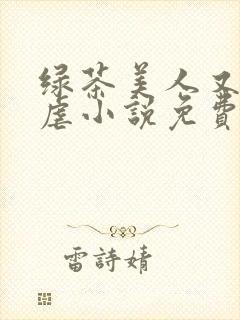 绿茶美人又
虐小說免費
雷詩婧